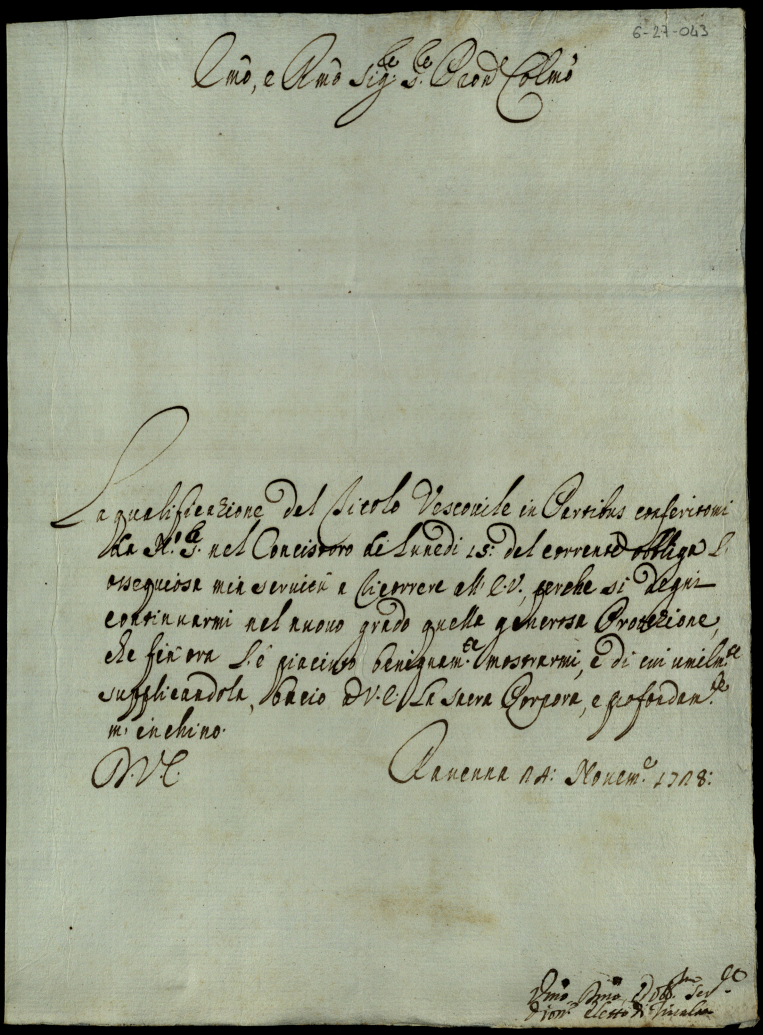 6-27-043
Emo, e Rmo Sig.re S.re Pron Colmo
La qualificazione del Titolo Vescovile in Partibus conferitomi
da N.ro S.re nel Concistoro de Lunedi 15: del corrente obbliga l'
ossequiosa mia servitù a ricorrere all' E.V., perche si degni
continuarmi nel nuovo grado quella generosa Protezione,
che fin'ora s'è piaciuto benignam.te mostrarmi, e di cui umilm.te
supplicandola, bacio a V.E. la sacra Porpora, e profondam.te
m' inchino.
D. V. E.
Ravenna 24: Novem.e 1728:
Vmo Dmo, Obb. Ser.
Dion. eletto di